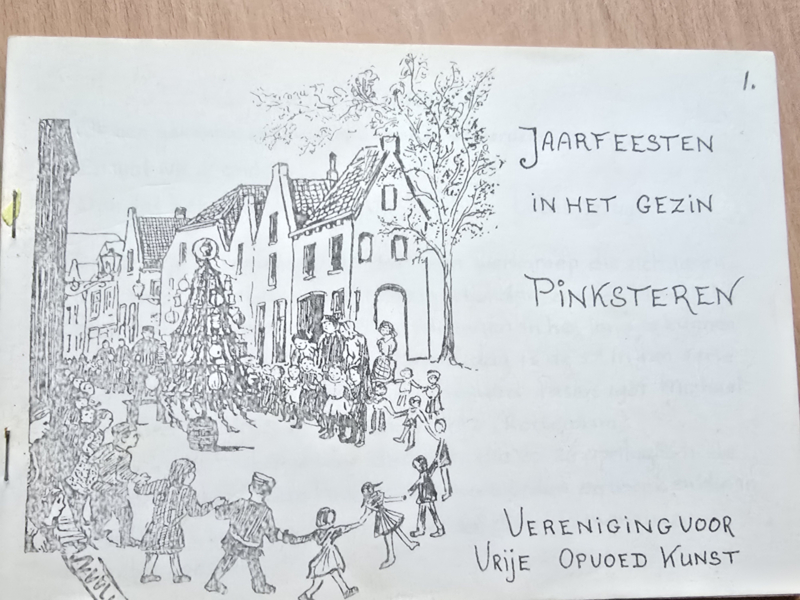 1.
JAARFEESTEN
IN HET GEZIN
PINKSTEREN
VERENIGING VOOR
VRIJE OPVOED KUNST